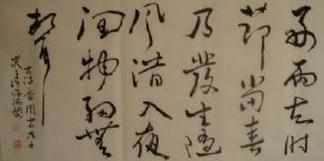 好雨知时
节当春
乃發生随
风潜入夜
润物细無
声